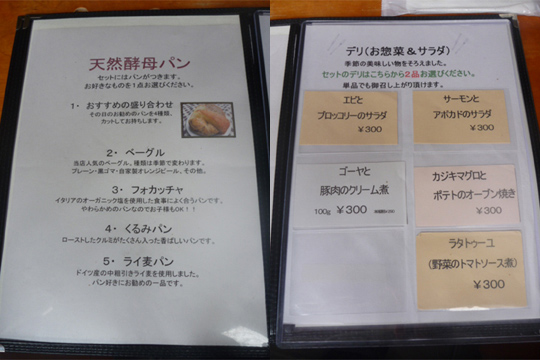 天然酵母パン
セットにはパンがつきます。
お好きなものを1点お選びください。
1・ おすすめの盛り合わせ
その日のお勧めのパンを4種類、
カットしてお持ちします。
2・ ベーグル
当店人気のベーグル、種類は季節で変わります。
プレーン・黒ゴマ・自家製オレンジピール、その他。
3・ フォカッチャ
イタリアのオーガニック塩を使用した食事によく合うパンです。
やわらかめのパンなのでお子様もOK!!
4・ くるみパン
ローストしたクルミがたくさん入った香ばしいパンです。
5・ ライ麦パン
ドイツ産の中粗引きライ麦を使用しました。
パン好きにお勧めの一品です。
デリ(お惣菜&サラダ)
季節の美味しい物をそろえました。
セットのデリはこちらから2品お選びください。
単品でも御召し上がり頂けます。
エビと
ブロッコリーのサラダ
¥300
サーモンと
アボカドのサラダ
¥300
ゴーヤと
豚肉のクリーム煮
100g ¥300
カジキマグロと
ポテトのオーブン焼き
¥300
ラタトゥーユ
(野菜のトマトソース煮)
¥300